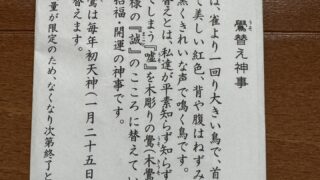 鷽替え神事
は、雀より一回り大きい鳥で、首
で美しい紅色、背や腹はねずみ
黒くきれいな声で鳴く鳥です。
替えとは、私達が平素知らず知らず
てしまう『嘘』を木彫りの鷽「木鷽
様の『誠』のこころに替えてい
招福・開運の神事です。
鷽は毎年初天神(一月二十五日
替えます。
量が限定のため、なくなり次第終了と